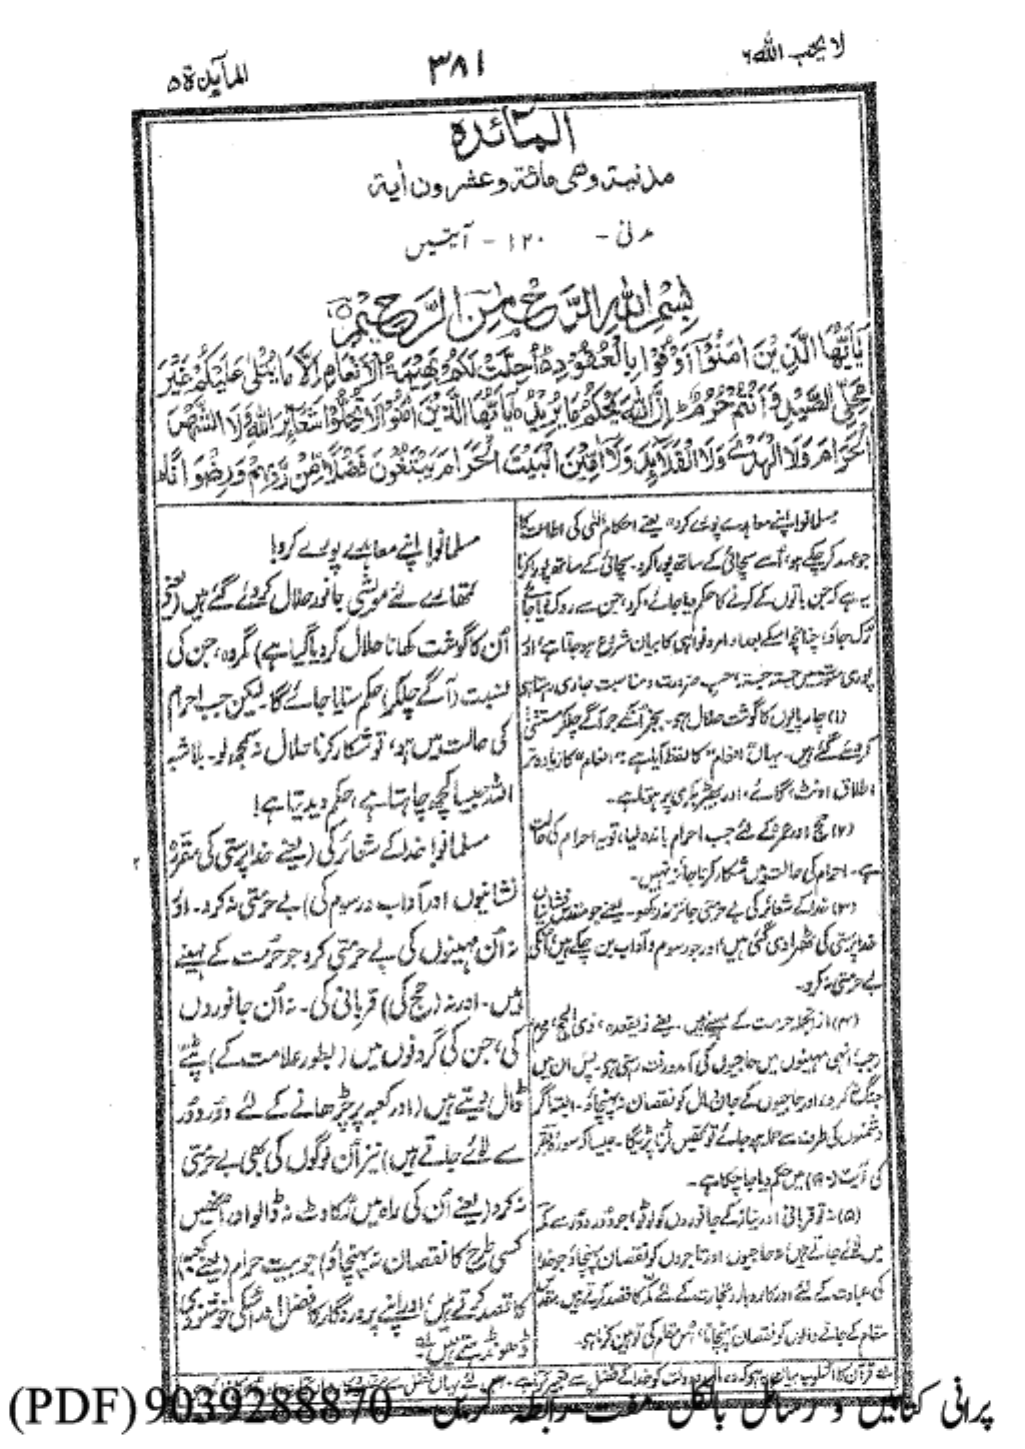 لا یحب اللہ ۶
۳۸۱
المآئدۃ ۵
المائدہ
مدنیة وهی مائة وعشرون اٰیة
مدنی - ۱۲۰ - آیتیں
بِسْمِ اللهِ الرَّحْمٰنِ الرَّحِيْمِ
يٰٓاَيُّهَا الَّذِيْنَ اٰمَنُوْٓا اَوْفُوْا بِالْعُقُوْدِ اُحِلَّتْ لَكُمْ بَهِيْمَةُ الْاَنْعَامِ اِلَّا مَا يُتْلٰى عَلَيْكُمْ غَيْرَ
مُحِلِّى الصَّيْدِ وَاَنْتُمْ حُرُمٌ اِنَّ اللهَ يَحْكُمُ مَا يُرِيْدُ يٰٓاَيُّهَا الَّذِيْنَ اٰمَنُوْا لَا تُحِلُّوْا شَعَآئِرَ اللهِ وَلَا الشَّهْرَ
الْحَرَامَ وَلَا الْهَدْىَ وَلَا الْقَلَآئِدَ وَلَآ اٰمِّيْنَ الْبَيْتَ الْحَرَامَ يَبْتَغُوْنَ فَضْلًا مِّنْ رَّبِّهِمْ وَرِضْوَانًا
مسلمانو! اپنے معاہدے پورے کرو۔ یعنے احکام الٰہی کی اطاعت کا
جو عہد کر چکے ہو، اُسے سچائی کے ساتھ پورا کرو۔ سچائی کے ساتھ پورا کرنا
یہ ہے کہ جن باتوں کے کرنے کا حکم دیا جائے، کرو، جن سے روک دیا جائے
رُک جاؤ، چنانچہ اسکے بعد اوامر و نواہی کا بیان شروع ہو جاتا ہے، اور
پوری سورت میں جستہ جستہ، حسبِ ضرورت و مناسبت جاری رہتا ہے
(۱) چارپایوں کا گوشت حلال ہے۔ بجز اُنکے جو آگے چلکر مستثنیٰ
کر دیے گئے ہیں۔ یہاں "انعام" کا لفظ آیا ہے۔ "انعام" کا زیادہ تر
اطلاق اونٹ، گائے، اور بھیڑ بکری پر ہوتا ہے۔
(۲) حج اور عمرہ کے لئے جب احرام باندھ لیا، تو یہ احرام کی حالت
ہے۔ احرام کی حالت میں شکار کرنا جائز نہیں۔
(۳) خدا کے شعائر کی بے حرمتی جائز نہ رکھو۔ یعنے جو مقدس نشانیاں
خدا پرستی کی ٹھہرا دی گئی ہیں، اور جو رسوم و آداب بن چکے ہیں، اُنکی
بے حرمتی نہ کرو۔
(۴) ازانجملہ حرمت کے مہینے ہیں۔ یعنے ذیقعدہ، ذی الحجہ، محرم
رجب۔ انہی مہینوں میں حاجیوں کی آمدورفت رہتی ہے۔ پس ان میں
جنگ نہ کرو، اور حاجیوں کے جان و مال کو نقصان نہ پہنچاؤ۔ البتہ اگر
دشمنوں کی طرف سے حملہ ہو جائے تو تمہیں لڑنا پڑیگا۔ جیسا کہ سورۂ بقرہ
کی آیت (۱۹۰) میں حکم دیا جا چکا ہے۔
(۵) نہ تو قربانی اور نیاز کے جانوروں کو لوٹو، جو دُور دُور سے مکّہ
میں لائے جاتے ہیں، نہ حاجیوں اور تاجروں کو نقصان پہنچاؤ جو خدا
کی عبادت کے لئے اور کاروبار تجارت کے لئے مکہ کا قصد کرتے ہیں۔ مقدس
مقام کے جانے والوں کو نقصان پہنچانا، اُس مقام کی توہین کرنا ہے۔
مسلمانو! اپنے معاہدے پورے کرو!
تمھارے لئے مویشی جانور حلال کر دئے گئے ہیں (یعنے
اُن کا گوشت کھانا حلال کر دیا گیا ہے) مگر وہ، جن کی
نسبت (آگے چلکر) حکم سنایا جائے گا۔ لیکن جب احرام
کی حالت میں ہو، تو شکار کرنا حلال نہ سمجھ لو۔ بلاشبہ
اللہ جیسا کچھ چاہتا ہے، حکم دیدیتا ہے!
مسلمانو! خدا کے شعائر کی (یعنے خدا پرستی کی مقررہ
۲
نشانیوں اور آداب و رسوم کی) بے حرمتی نہ کرو۔ اور
نہ اُن مہینوں کی بے حرمتی کرو جو حرمت کے مہینے
ہیں۔ اور نہ (حج کی) قربانی کی۔ نہ اُن جانوروں
کی، جن کی گردنوں میں (بطور علامت کے) پٹے
ڈال دیتے ہیں (اور کعبہ پر چڑھانے کے لئے دُور دُور
سے لائے جاتے ہیں) نیز اُن لوگوں کی بھی بے حرمتی
نہ کرو (یعنے اُن کی راہ میں رُکاوٹ نہ ڈالو اور اُنھیں
کسی طرح کا نقصان نہ پہنچاؤ) جو بیت حرام (یعنے کعبہ)
کا قصد کرتے ہیں، اور اپنے پروردگار کا فضل اور اُسکی خوشنودی
ڈھونڈھتے ہیں۔
قرآن کا اسلوب بیان یہ ہے کہ وہ مال و دولت کو خدا کے فضل سے تعبیر کرتا ہے۔
پرانی کتابیں و رسائل بالکل مفت رابطہ کریں (PDF) 9039288870